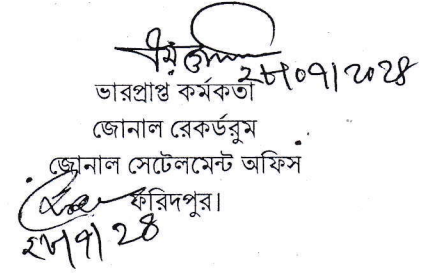 ২৮/০৭/২০২৪
ভারপ্রাপ্ত কর্মকর্তা
জোনাল রেকর্ডরুম
জোনাল সেটেলমেন্ট অফিস
ফরিদপুর।
২৮/৭/২৪